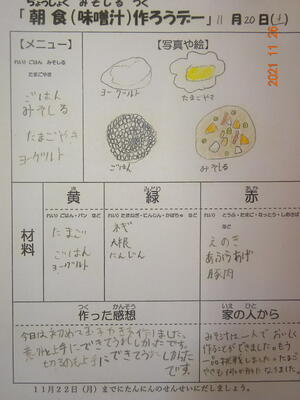 ちょうしょく みそしる つく
「朝食(味噌汁)作ろうデー」 11月20日(土)
2021 11 26
【メニュー】
れい) ごはん みそしる
たまごやき
ごはん
みそしる
たまごやき
ヨーグルト
【写真や絵】
ヨーグルト
たまごやき
ごはん
みそしる
材料
き
黄
れい) ごはん・パン など
たまご
ごはん
ヨーグルト
みどり
緑
れい) たまねぎ・にんじん・かぼちゃ など
ネギ
大根
にんじん
あか
赤
れい) とうふ・たまご・なっとう・しめさば
など
えのき
あぶらあげ
豚肉
つく かんそう
作った感想
今日は初めてたまごやきを作りました。
意外と上手にできてうれしかったです。
切るのも上手にできてうれしかった
です。
いえ ひと
家の人から
みそ汁は一人でおいしく
作ることができました。もう
一品挑戦しました。たまご
やきも
11月22日(月)までにたんにんのせんせいにだしましょう。